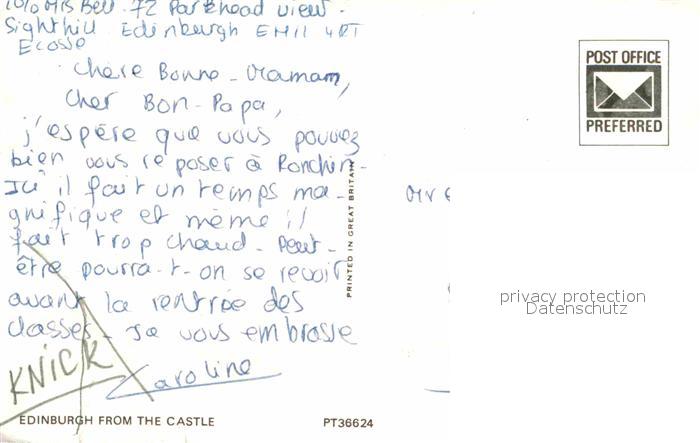 Mrs Bell. 72 Parkhead view.
Sighthill Edinburgh EH11 4RT
Ecosse
Chère Bonne-Maman,
Cher Bon-Papa,
j'espère que vous pouvez
bien vous reposer à Ronchin.
Ici il fait un temps ma-
gnifique et même il
fait trop chaud. Peut-
être pourra-t-on se revoir
avant la rentrée des
classes. Je vous embrasse
Caroline
KNICK
EDINBURGH FROM THE CASTLE
PT36624
PRINTED IN GREAT BRITAIN
POST OFFICE
PREFERRED
privacy protection
Datenschutz